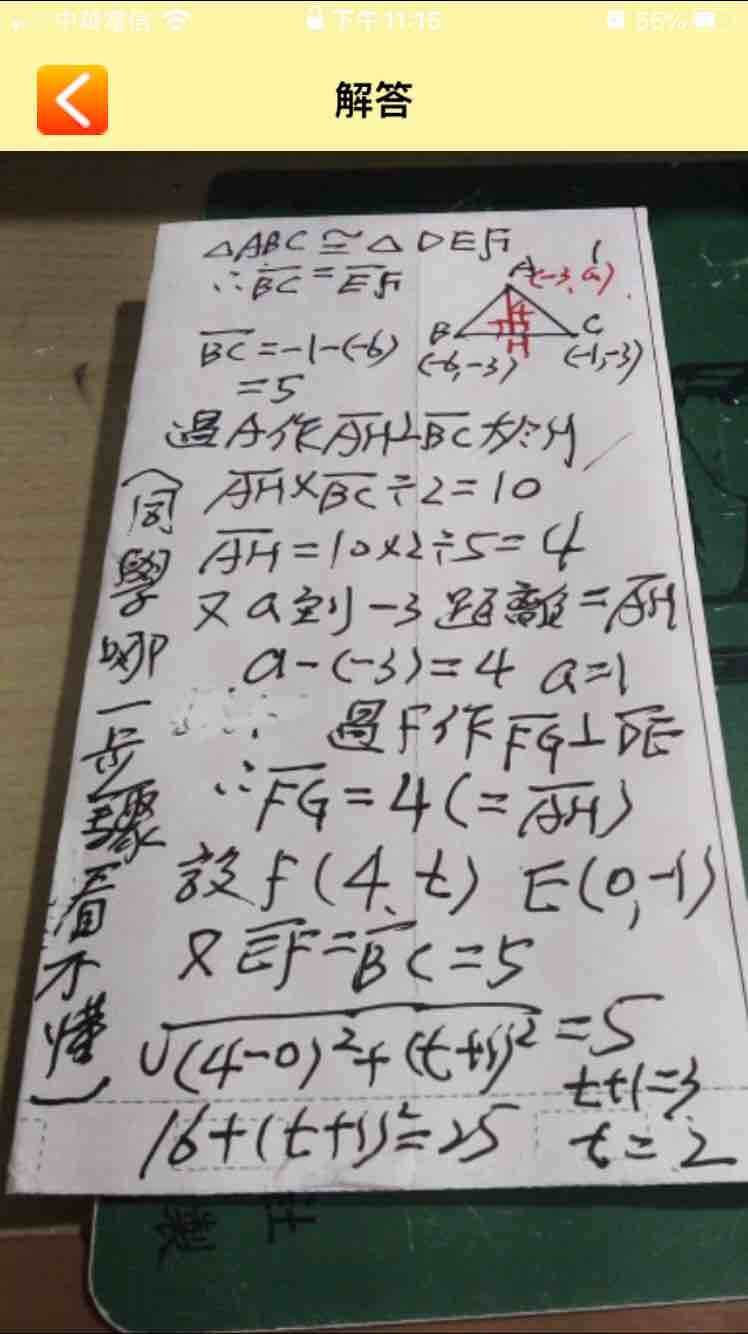 中華電信 下午 11:15 55%
解答
△ABC≅△DEF
∴BC=EF
A(-3,a)
1
4
B C
H
(-6,-3) (-1,-3)
BC=-1-(-6)
=5
過A作AH⊥BC於H
AH×BC÷2=10
AH=10×2÷5=4
又a到-3距離=AH
a-(-3)=4 a=1
過F作FG⊥DE
∴FG=4(=AH)
設F(4,t) E(0,-1)
又EF=BC=5
√(4-0)²+(t+1)²=5
t+1=3
16+(t+1)²=25 t=2
(同學哪一步驟看不懂)
社
製